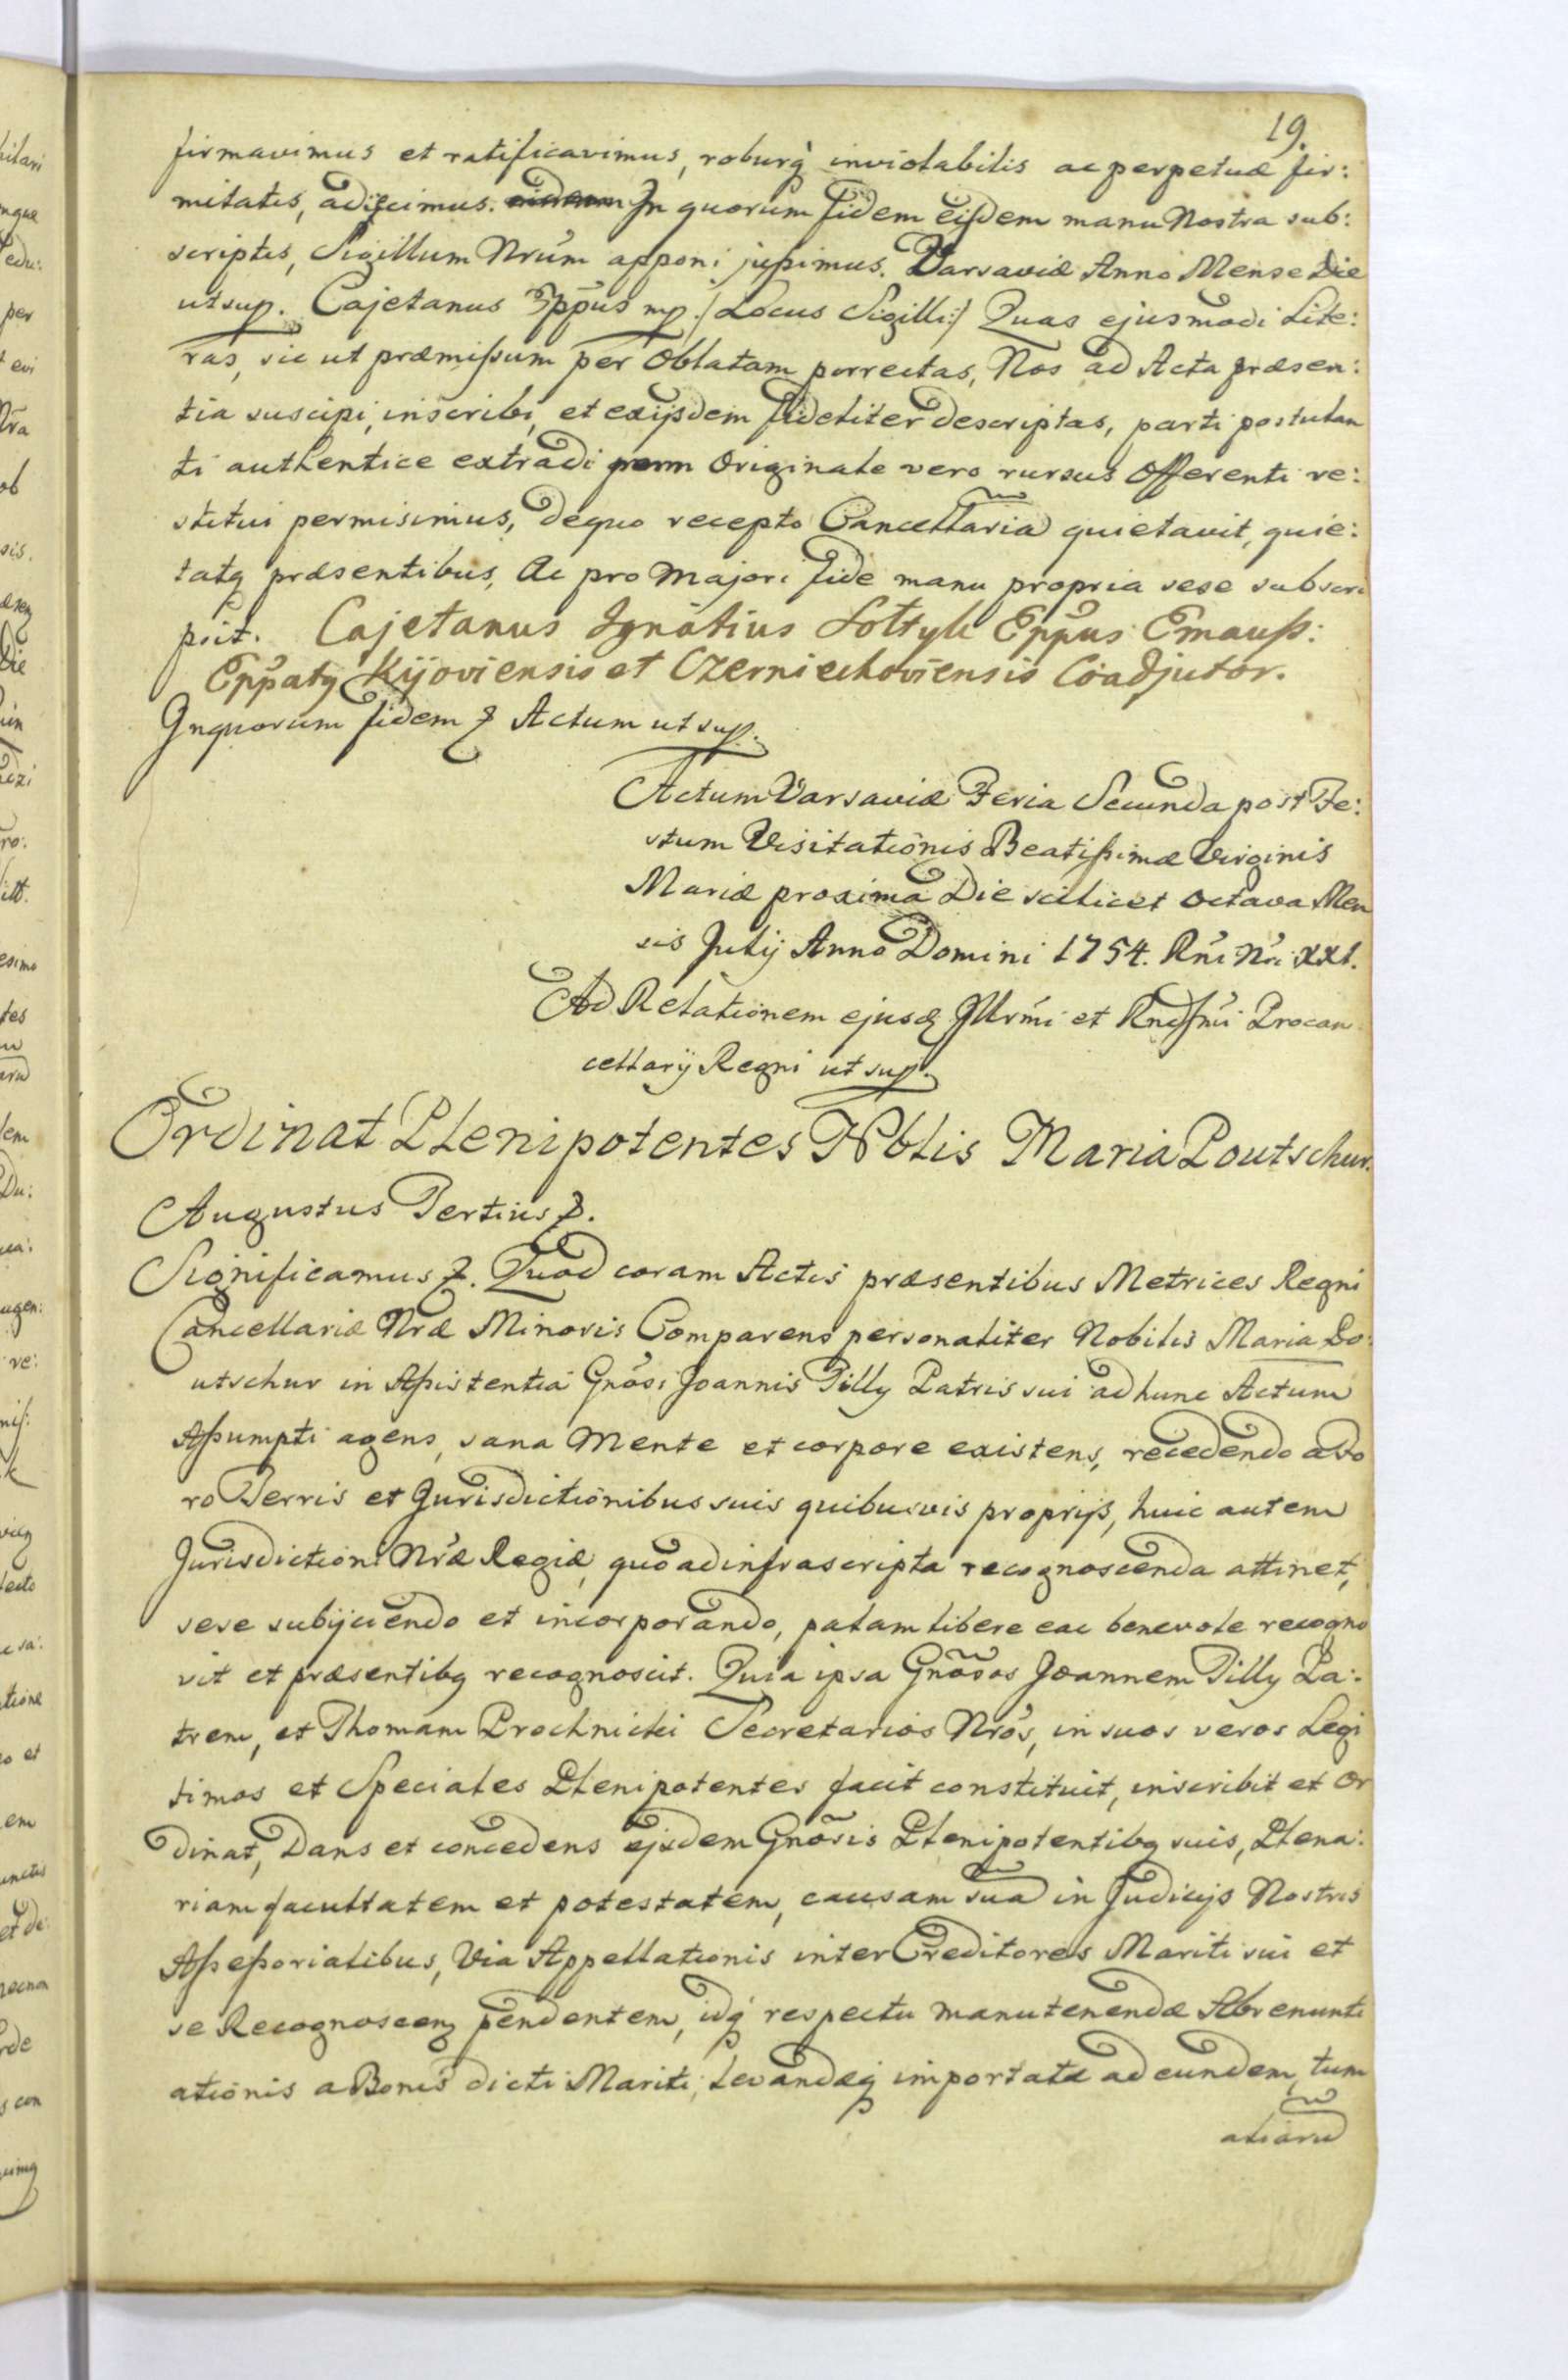 19.
firmavimus et ratificavimus, roburq́ inviolabilis ac perpetuæ fir:
mitatis, adijcimus. In quorum fidem eisdem manu Nostra sub:
scriptis, Sigillum Nrúm apponi jußimus. Varsaviæ Anno Mense Die
ut sup. Cajetanus Eppus mp. /:Locus Sigilli:/ Quas ejusmodi Lite:
ras, sic ut præmißum per Oblatam porrectas, Nos ad Acta præsen:
tia suscipi, inscribi, et exijsdem fideliter descriptas, parti postulan
ti authentice extradi Originale vero rursus Offerenti re:
stitui permisimus, de quo recepto Cancellaria quietavit, quie:
tatq præsentibus, Ac pro Majori fide manu propria sese subscri
psit. Cajetanus Ignatius Sołtyk Eppus Emauß:
Eppatq Kijoviensis et Czerniechoviensis Coadjutor.
In quorum fidem & Actum ut sup.
Actum Varsaviæ Feria Secunda post Fe:
stum Visitationis Beatißimæ Virginis
Mariæ proxima Die scilicet octava Men
sis Julij Anno Domini 1754. Rńi Nri XXI.
Ad Relationem ejusd Illrmi et Rndsmi Procan
cellarij Regni ut sup.
Ordinat Plenipotentes Nblis Maria Poutschur.
Augustus Tertius &.
Significamus &. Quod coram Actis præsentibus Metrices Regni
Cancellariæ Nræ Minoris Comparens personaliter Nobilis Maria Po:
utschur in Aßistentia Gnosi Joannis Tilly Patris sui ad hunc Actum
Aßumpti agens, sana Mente et corpore existens, recedendo a Fo
ro Terris et Jurisdictionibus suis quibusvis proprijs, huic autem
Jurisdictioni Nræ Regiæ, quo ad infrascripta recognoscenda attinet,
sese subijciendo et incorporando, palam libere eac benevole recogno
vit et præsentibq recognoscit. Quia ipsa Gnosos Joannem Tilly Pa:
trem, et Thomam Prochnicki Secretarios Nros, in suos veros Legi
timos et Speciales Plenipotentes facit constituit, inscribit et Or
dinat, Dans et concedens ejsdem Gnosis Plenipotentibq suis, Plena:
riam facultatem et potestatem, causam sua in Judicijs Nostris
Aßeßorialibus, Via Appellationis inter Creditores Mariti sui et
se Recognoscen pendentem, idq́ respectu manutenendæ Abrenunti
ationis a Bonis dicti Mariti, levandæq importatæ ad eundem, tum
aliaru